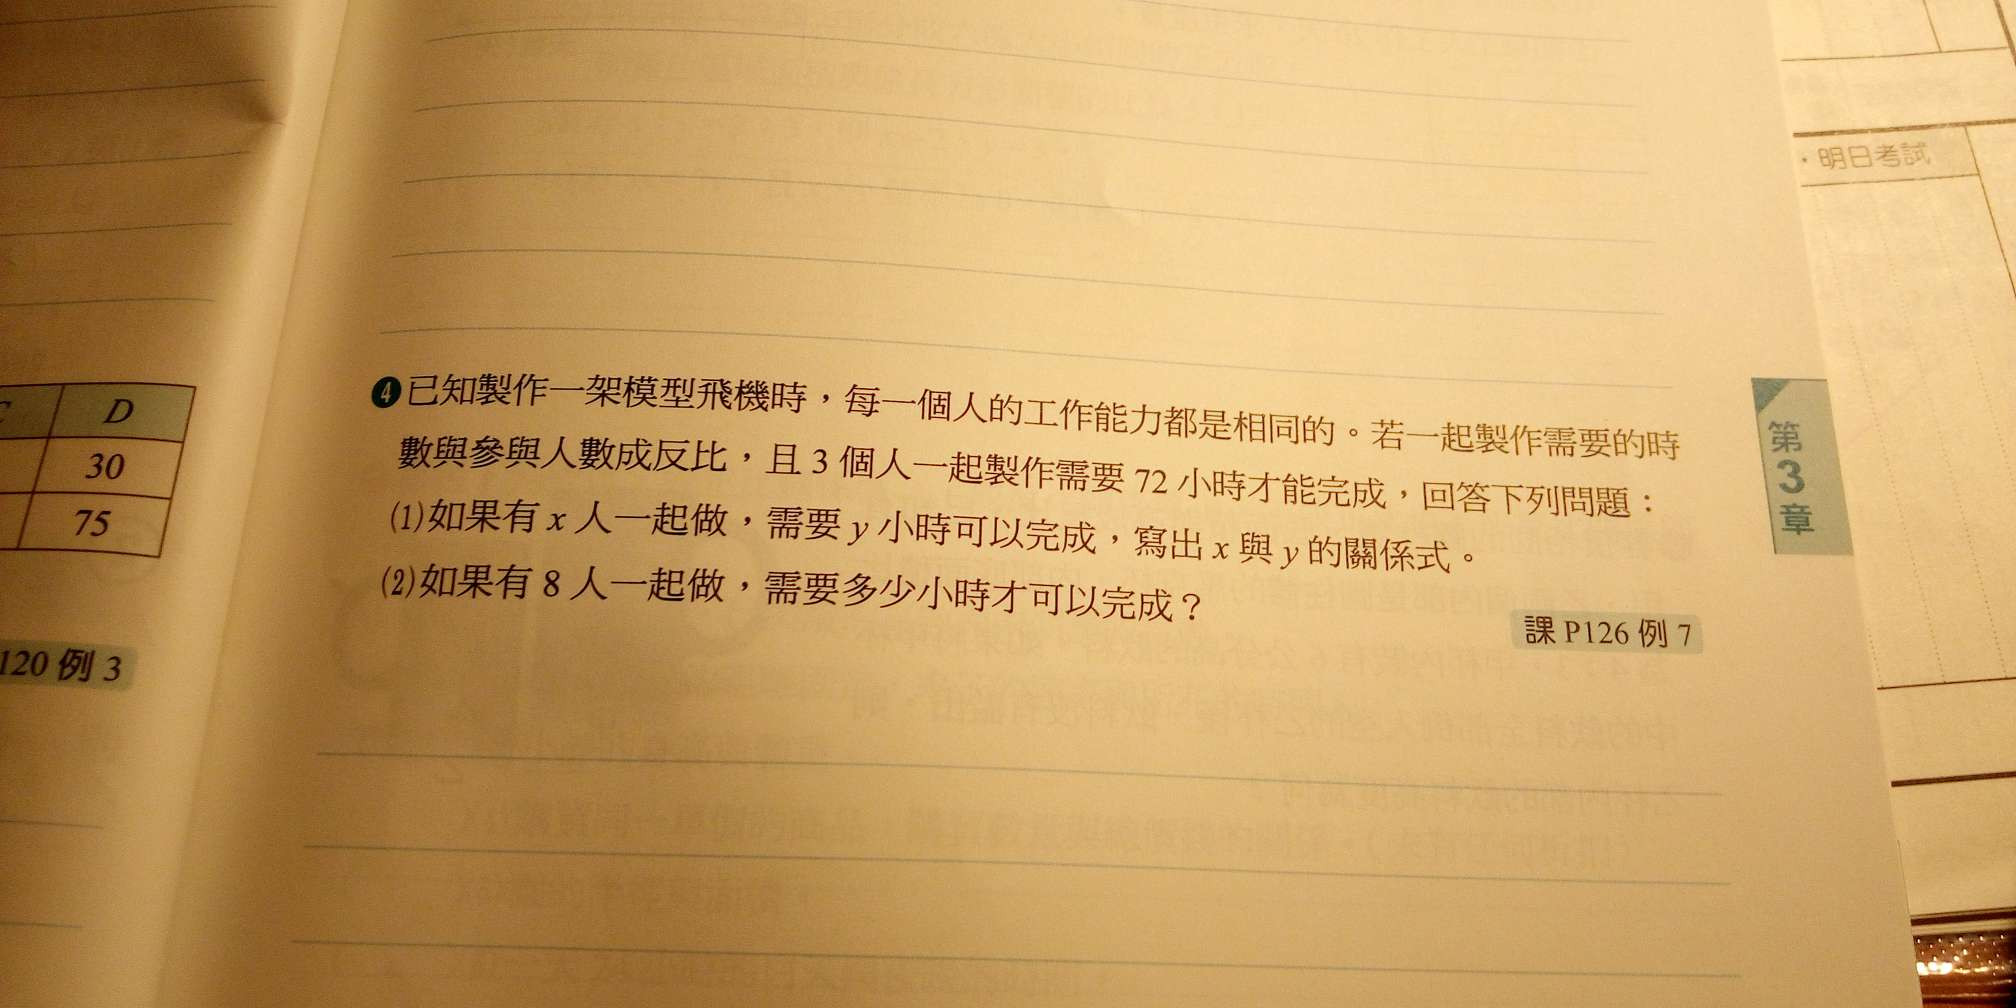 ❹已知製作一架模型飛機時，每一個人的工作能力都是相同的。若一起製作需要的時
數與參與人數成反比，且 3 個人一起製作需要 72 小時才能完成，回答下列問題：
(1)如果有 x 人一起做，需要 y 小時可以完成，寫出 x 與 y 的關係式。
(2)如果有 8 人一起做，需要多少小時才可以完成？
課 P126 例 7
D
30
75
120 例 3
第3章
・明日考試